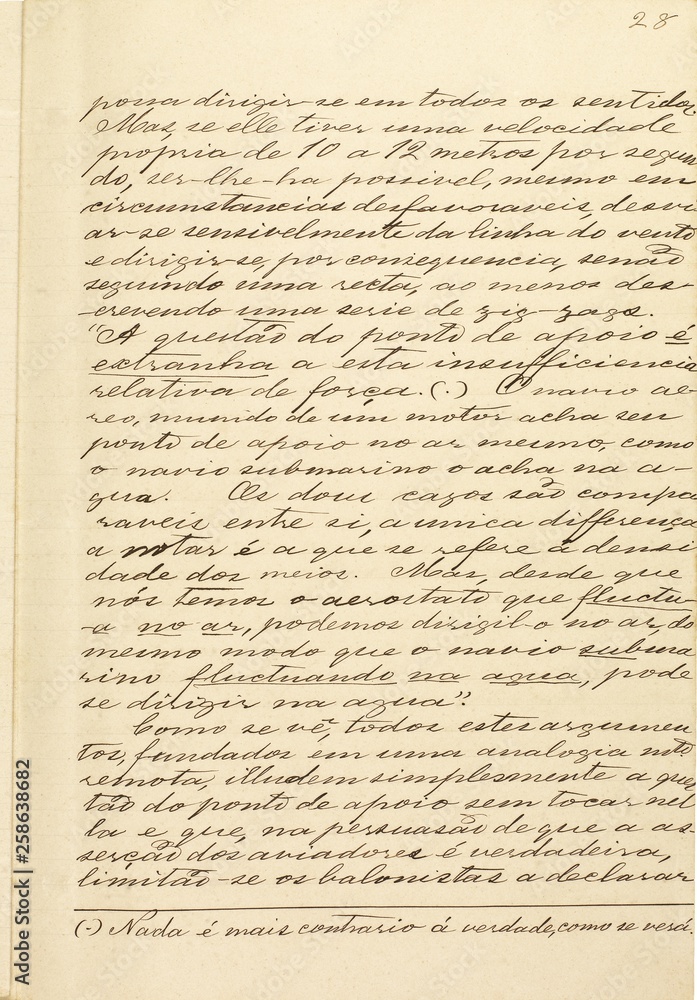 28
possa dirigir-se em todos os sentidos.
Mas, se elle tiver uma velocidade
propria de 10 a 12 metros por segun
do, ser-lhe-ha possivel, mesmo em
circumstancias desfavoraveis, desvi
ar-se sensivelmente da linha do vento
e dirigir-se, por consequencia, senão
seguindo uma recta, ao menos des-
crevendo uma serie de zig-zags.
"A questão do ponto de apoio é
extranha a esta insufficiencia
relativa de força. (.) O navio ae-
reo, munido de um motor acha seu
ponto de apoio no ar mesmo, como
o navio submarino o acha na a-
gua. Os dous cazos são compa
raveis entre si, a unica differença
a notar é a que se refere á densi
dade dos meios. Mas, desde que
nós temos o aerostato que fluctu-
-a no ar, podemos dirigil-o no ar, do
mesmo modo que o navio subma
rino fluctuando na agua, pode
se dirigir na agua".
Como se vê, todos estes argumen
tos, fundados em uma analogia mto
remota, illudem simplesmente a ques
tão do ponto de apoio sem tocar nel
la e que, na persuasão de que a as
serção dos aviadores é verdadeira,
limitão-se os balonistas a declarar
(.) Nada é mais contrario á verdade, como se verá.
Adobe Stock | #258638682